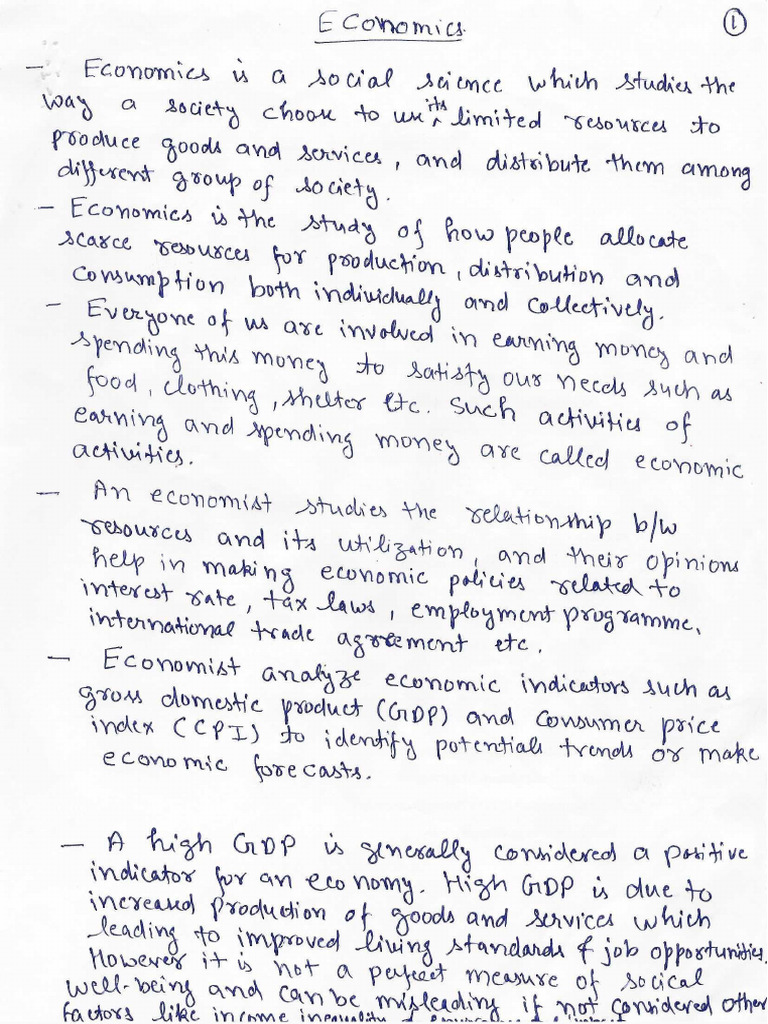 Economics
①
- Economics is a social science which studies the
way a society choose to use its limited resources to
produce goods and services, and distribute them among
different group of society.
- Economics is the study of how people allocate
scarce resources for production, distribution and
consumption both individually and collectively.
- Everyone of us are involved in earning money and
spending this money to satisfy our needs such as
food, clothing, shelter etc. Such activities of
earning and spending money are called economic
activities.
- An economist studies the relationship b/w
resources and its utilization, and their opinions
help in making economic policies related to
interest rate, tax laws, employment programme,
international trade agreement etc.
- Economist analyze economic indicators such as
gross domestic product (GDP) and consumer price
index (CCPI) to identify potentials trends or make
economic forecasts.
- A high GDP is generally considered a positive
indicator for an economy. High GDP is due to
increased production of goods and services which
leading to improved living standards & job opportunities.
However it is not a perfect measure of socical
well-being and can be misleading if not considered other
factors like income inequality &